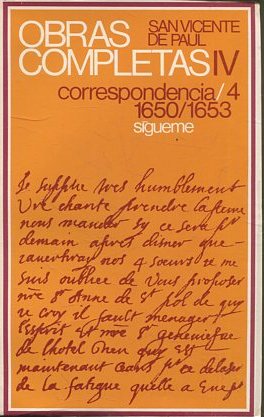 OBRAS
COMPLETAS IV
SAN VICENTE
DE PAUL
correspondencia/4
1650/1653
sígueme
Je supplie tres humblement
Vre charité prendre la peine
nous mander sy ce sera pr
demain apres disner que
nos 4 sœurs Je me
suis oubliee de Vous proposer
nre Sr Anne de St pol de quy
Je croy il fault menager
l'esprit Et nre Sr geneviefve
de l'hotel Dieu quy Est
maintenant ceans pr ce delaser
de la fatigue quelle a Eue pr